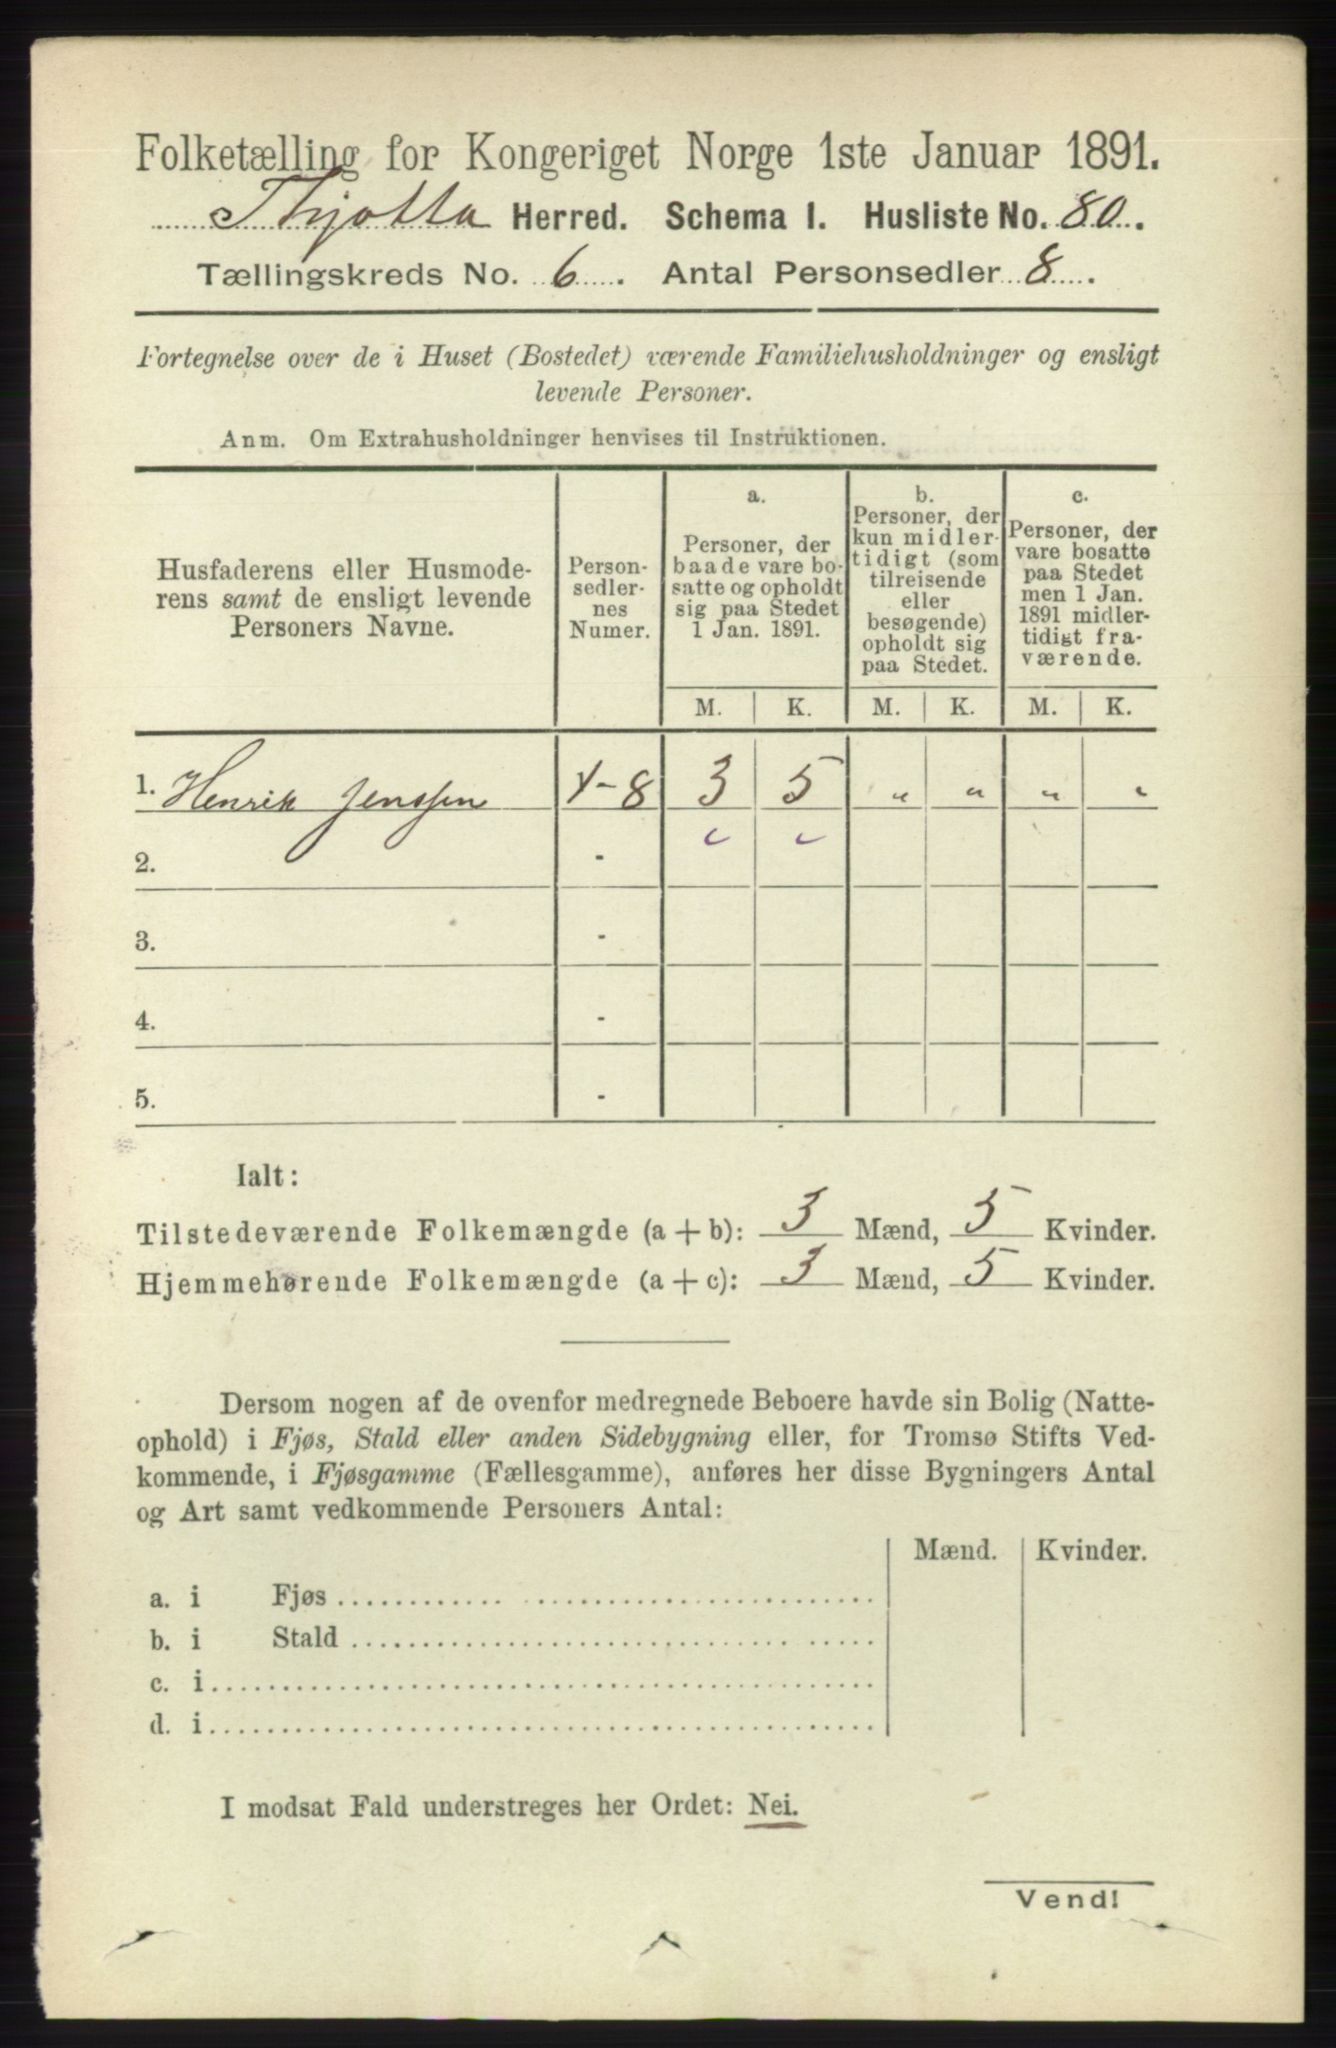 Folketælling for Kongeriget Norge 1ste Januar 1891.
Thjotta Herred. Schema I. Husliste No. 80.
Tællingskreds No. 6. Antal Personsedler 8.
Fortegnelse over de i Huset (Bostedet) værende Familiehusholdninger og ensligt
levende Personer.
Anm. Om Extrahusholdninger henvises til Instruktionen.
Husfaderens eller Husmode-
rens samt de ensligt levende
Personers Navne.
Person-
sedler-
nes
Numer.
a.
Personer, der
baade vare bo-
satte og opholdt
sig paa Stedet
1 Jan. 1891.
b.
Personer, der
kun midler-
tidigt (som
tilreisende
eller
besøgende)
opholdt sig
paa Stedet.
c.
Personer, der
vare bosatte
paa Stedet
men 1 Jan.
1891 midler-
tidigt fra-
værende.
M. K. M. K. M. K.
1. Henrik Jenssen 1-8 3 5 " " " "
2. -
3. -
4. -
5. -
Ialt:
Tilstedeværende Folkemængde (a + b): 3 Mænd, 5 Kvinder.
Hjemmehørende Folkemængde (a + c): 3 Mænd, 5 Kvinder.
Dersom nogen af de ovenfor medregnede Beboere havde sin Bolig (Natte-
ophold) i Fjøs, Stald eller anden Sidebygning eller, for Tromsø Stifts Ved-
kommende, i Fjøsgamme (Fællesgamme), anføres her disse Bygningers Antal
og Art samt vedkommende Personers Antal:
Mænd. Kvinder.
a. i Fjøs
b. i Stald
c. i
d. i
I modsat Fald understreges her Ordet: Nei.
Vend!